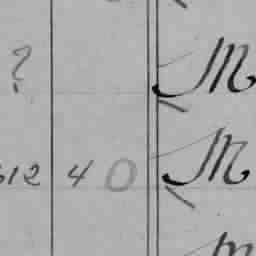 ? M
612 4 0 M
M